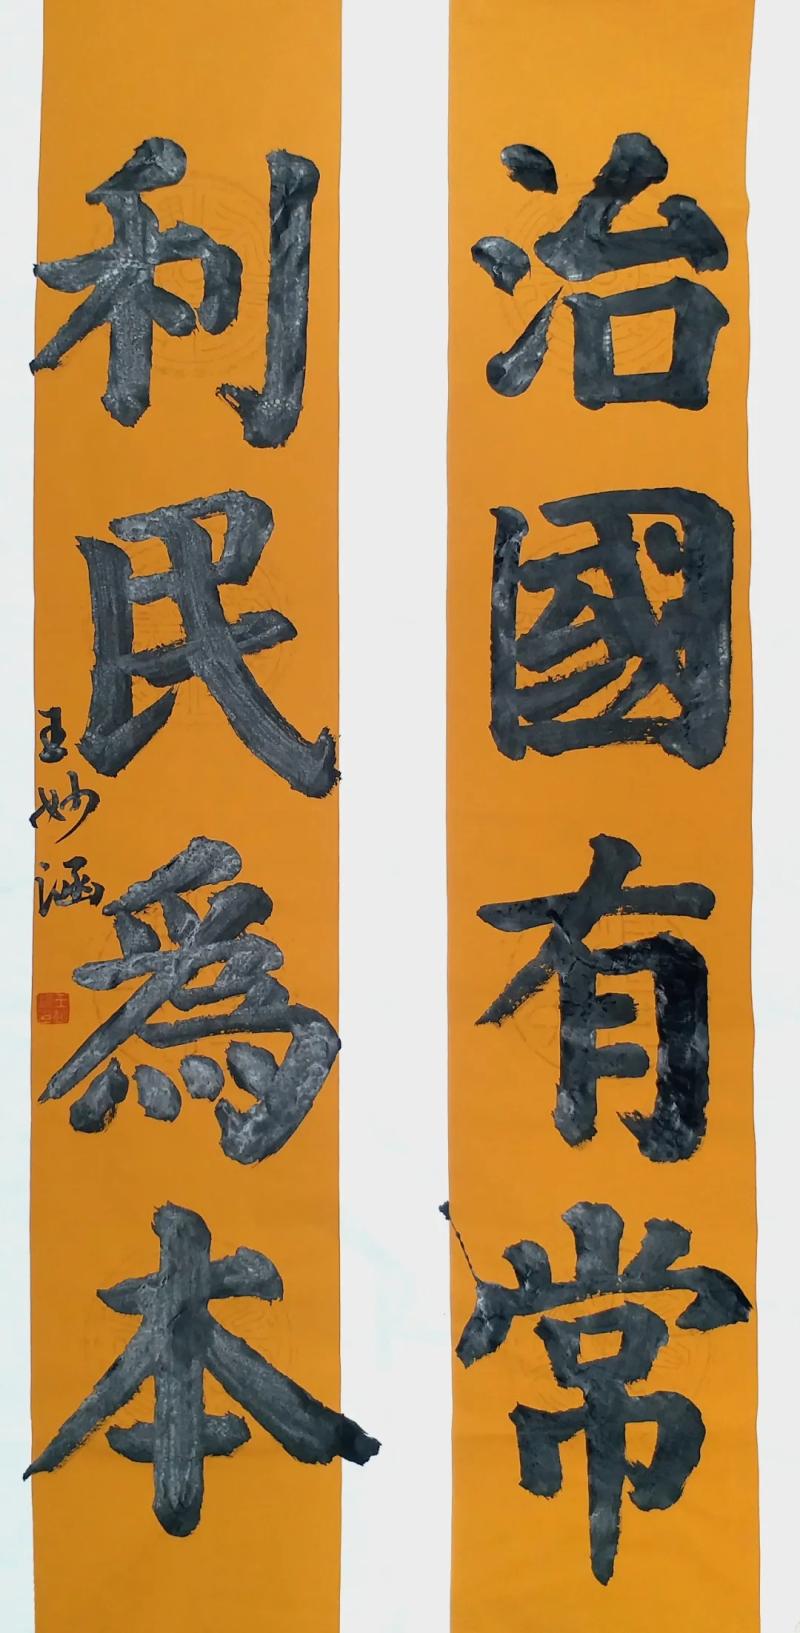 治國有常
利民爲本
王妙涵